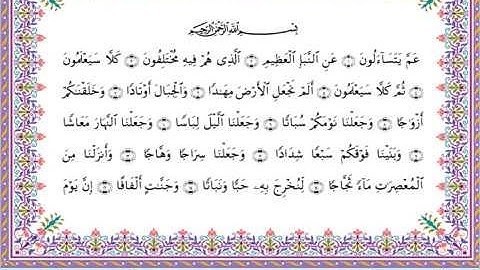 بِسْمِ ٱللَّهِ ٱلرَّحْمَٰنِ ٱلرَّحِيمِ
عَمَّ يَتَسَآءَلُونَ ۝ عَنِ ٱلنَّبَإِ ٱلْعَظِيمِ ۝ ٱلَّذِى هُمْ فِيهِ مُخْتَلِفُونَ ۝ كَلَّا سَيَعْلَمُونَ
۝ ثُمَّ كَلَّا سَيَعْلَمُونَ ۝ أَلَمْ نَجْعَلِ ٱلْأَرْضَ مِهَٰدًا ۝ وَٱلْجِبَالَ أَوْتَادًا ۝ وَخَلَقْنَٰكُمْ
أَزْوَٰجًا ۝ وَجَعَلْنَا نَوْمَكُمْ سُبَاتًا ۝ وَجَعَلْنَا ٱلَّيْلَ لِبَاسًا ۝ وَجَعَلْنَا ٱلنَّهَارَ مَعَاشًا
۝ وَبَنَيْنَا فَوْقَكُمْ سَبْعًا شِدَادًا ۝ وَجَعَلْنَا سِرَاجًا وَهَّاجًا ۝ وَأَنزَلْنَا مِنَ
ٱلْمُعْصِرَٰتِ مَآءً ثَجَّاجًا ۝ لِّنُخْرِجَ بِهِۦ حَبًّا وَنَبَاتًا ۝ وَجَنَّٰتٍ أَلْفَافًا ۝ إِنَّ يَوْمَ